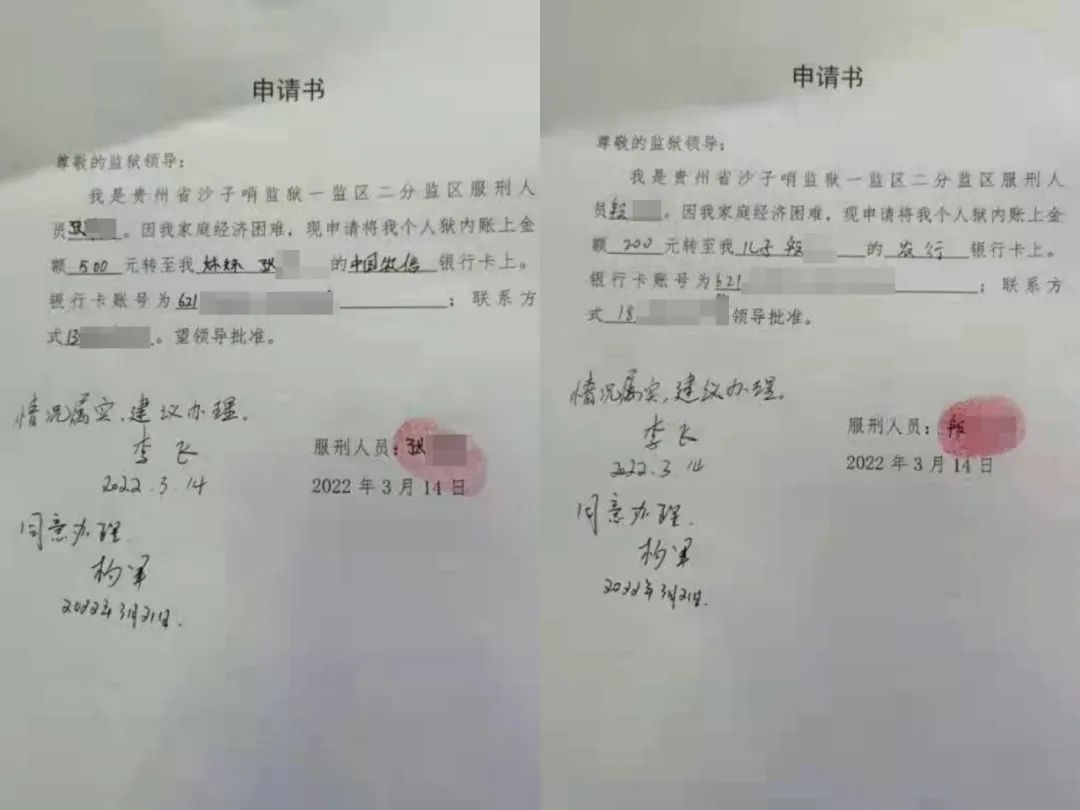 申请书
尊敬的监狱领导：
我是贵州省沙子哨监狱一监区二分监区服刑人
员耿。因我家庭经济困难，现申请将我个人狱内账上金
额 500 元转至我 妹妹 耿 的中国农信 银行卡上。
银行卡账号为621 ；联系方
式13 。望领导批准。
情况属实，建议办理。
李飞
2022.3.14
服刑人员：耿
2022年3月14日
同意办理。
杨军
2022年3月21日.
申请书
尊敬的监狱领导；
我是贵州省沙子哨监狱一监区二分监区服刑人
员段 。因我家庭经济困难，现申请将我个人狱内账上金
额 200 元转至我 儿子 段 的 农行 银行卡上。
银行卡账号为621 ；联系方
式 18 领导批准。
情况属实，建议办理。
李飞
2022.3.14
服刑人员：段
2022年3月14日
同意办理.
杨军
2022年3月21日.